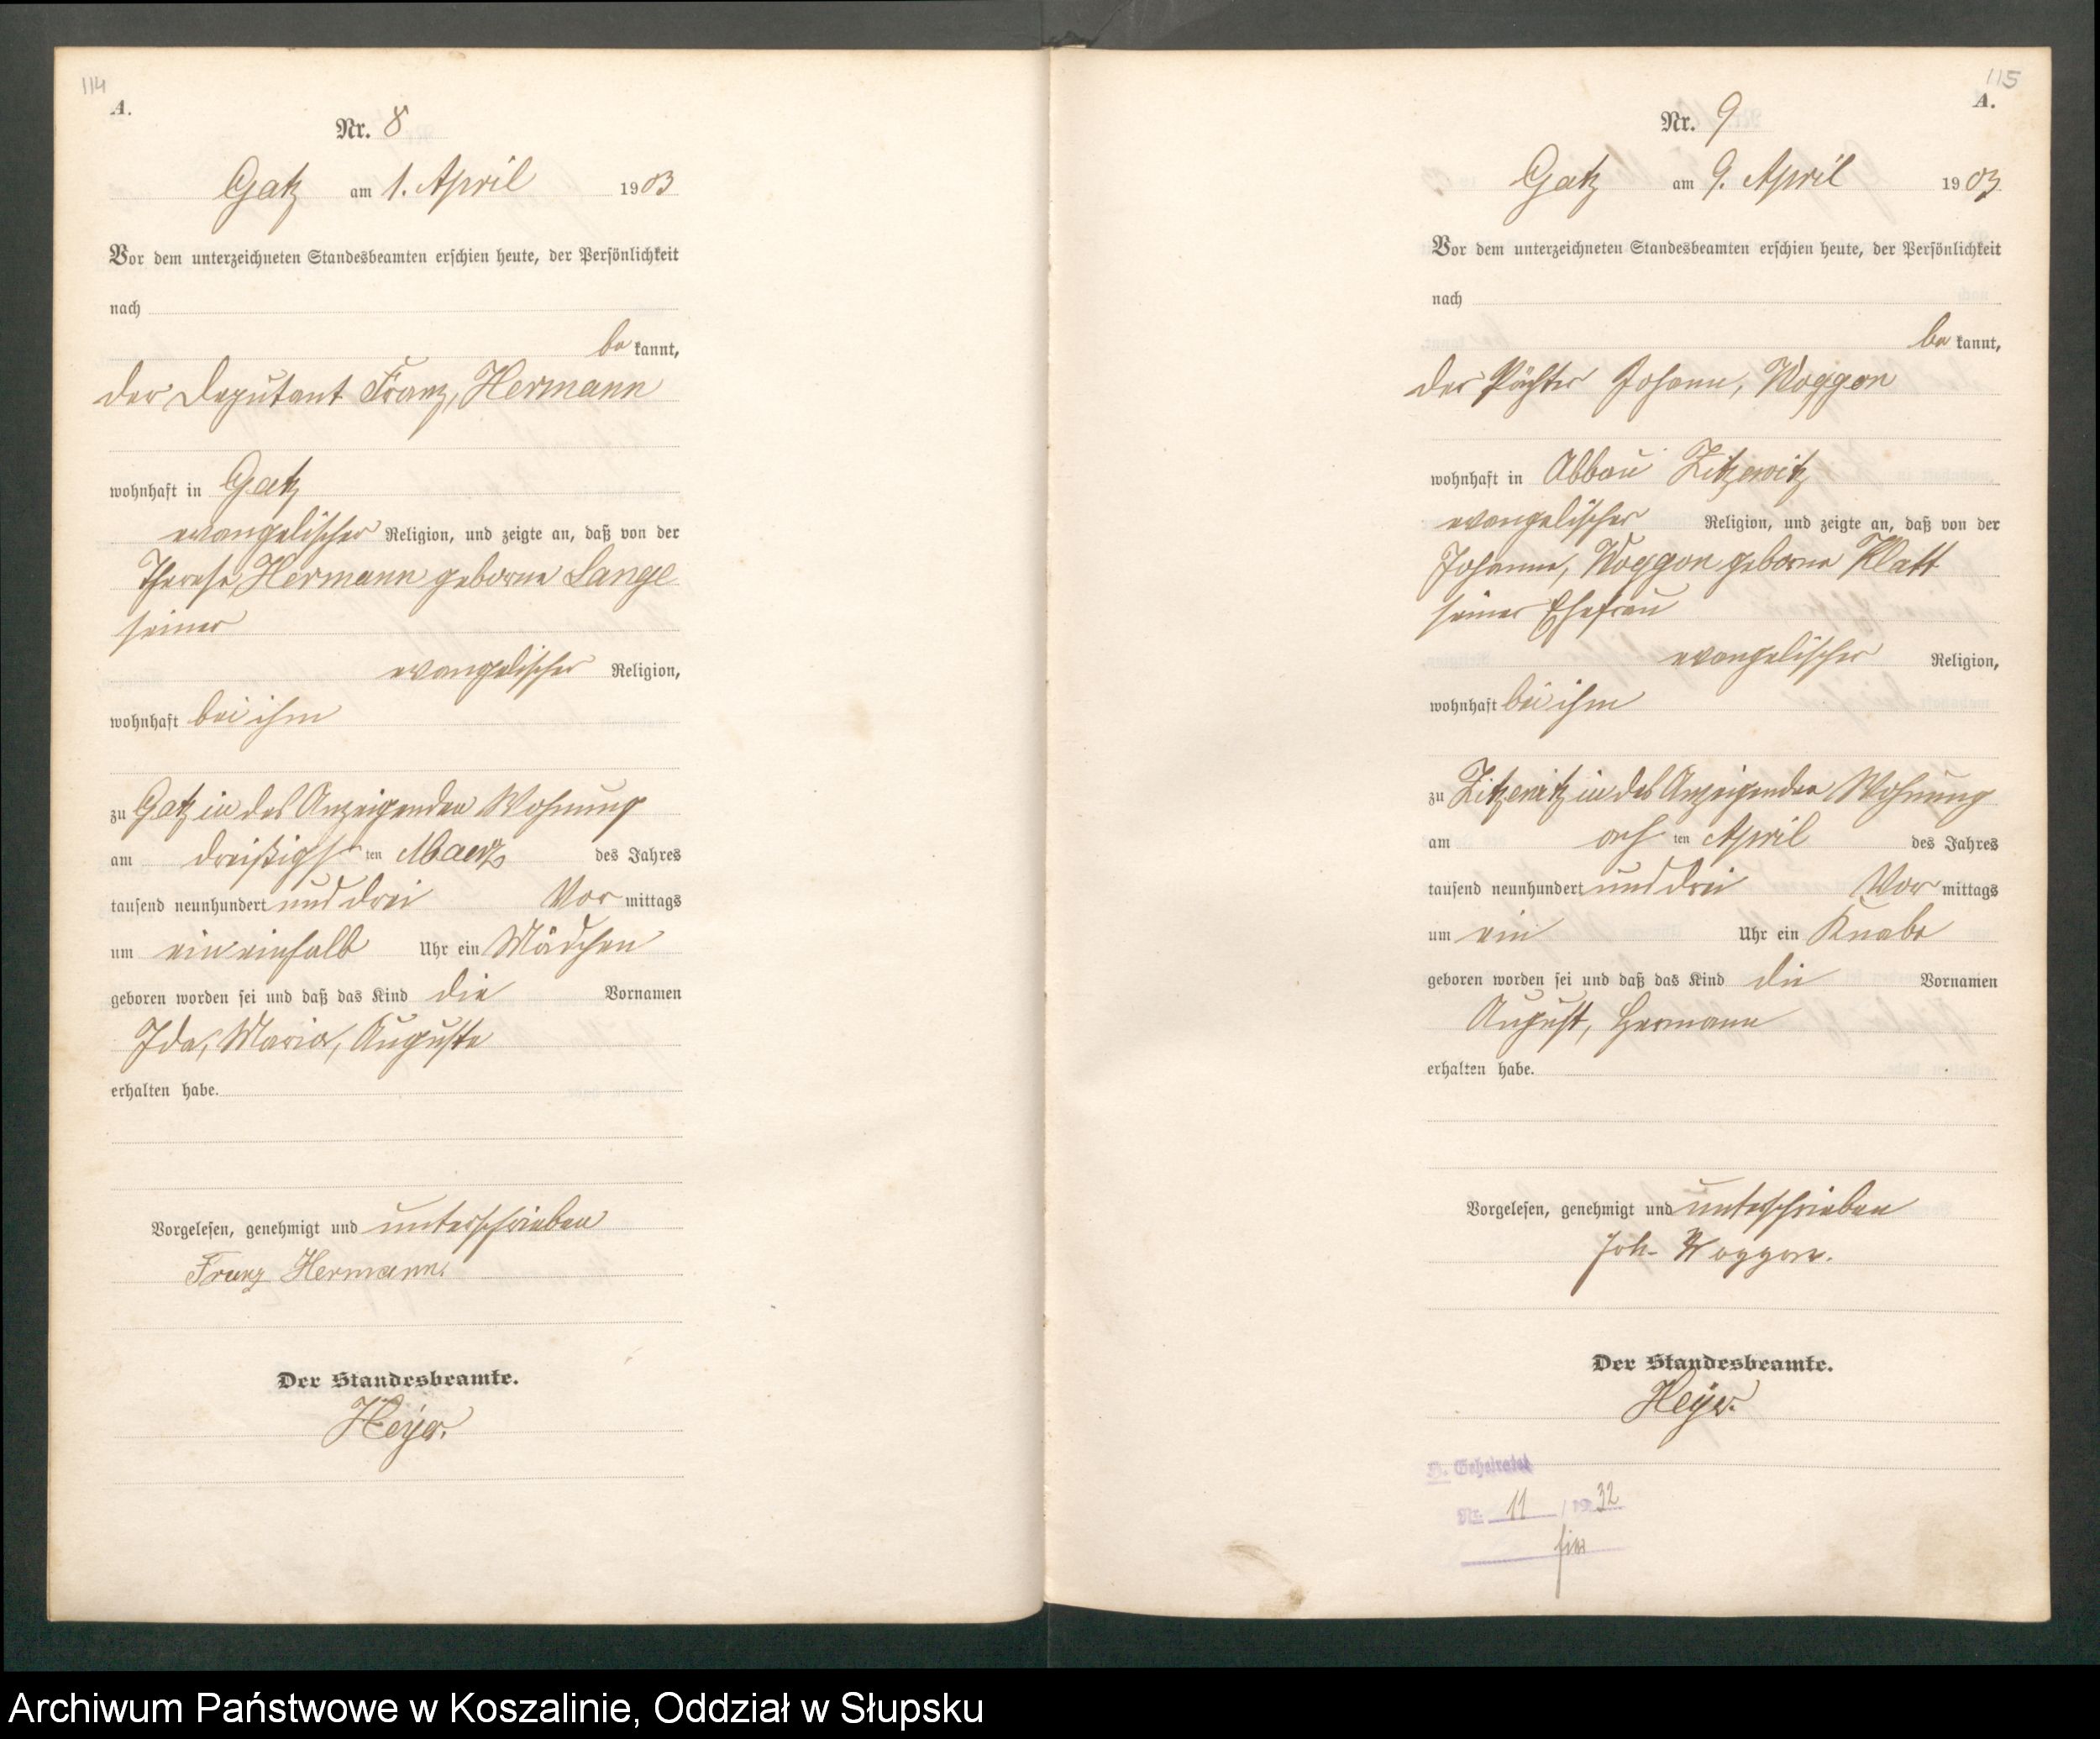 114
A.
Nr. 8
Gatz am 1. April 1903
Vor dem unterzeichneten Standesbeamten erschien heute, der Persönlichkeit
nach
be kannt,
der Deputant Franz, Hermann
wohnhaft in Gatz
evangelischer Religion, und zeigte an, daß von der
Therese, Hermann geborne Lange
seiner
evangelischer Religion,
wohnhaft bei ihm
zu Gatz in des Anzeigenden Wohnung
am dreißigsten Maerz des Jahres
tausend neunhundert und drei Vor mittags
um ein einhalb Uhr ein Mädchen
geboren worden sei und daß das Kind die Vornamen
Ida, Maria, Auguste
erhalten habe.
Vorgelesen, genehmigt und unterschrieben
Franz Hermann.
Der Standesbeamte.
Heyer.
115
A.
Nr. 9
Gatz am 9. April 1903
Vor dem unterzeichneten Standesbeamten erschien heute, der Persönlichkeit
nach
be kannt,
der Pächter Johann, Woggon
wohnhaft in Abbau Zitzewitz
evangelischer Religion, und zeigte an, daß von der
Johanne, Woggon geborne Klatt
seiner Ehefrau
evangelischer Religion,
wohnhaft bei ihm
zu Zitzewitz in des Anzeigenden Wohnung
am ach ten April des Jahres
tausend neunhundert und drei Vor mittags
um ein Uhr ein Knabe
geboren worden sei und daß das Kind die Vornamen
August, Hermann
erhalten habe.
Vorgelesen, genehmigt und unterschrieben
Joh. Woggon.
Der Standesbeamte.
Heyer.
H. Geheiratet
Nr. 11 / 1932
Archiwum Państwowe w Koszalinie, Oddział w Słupsku